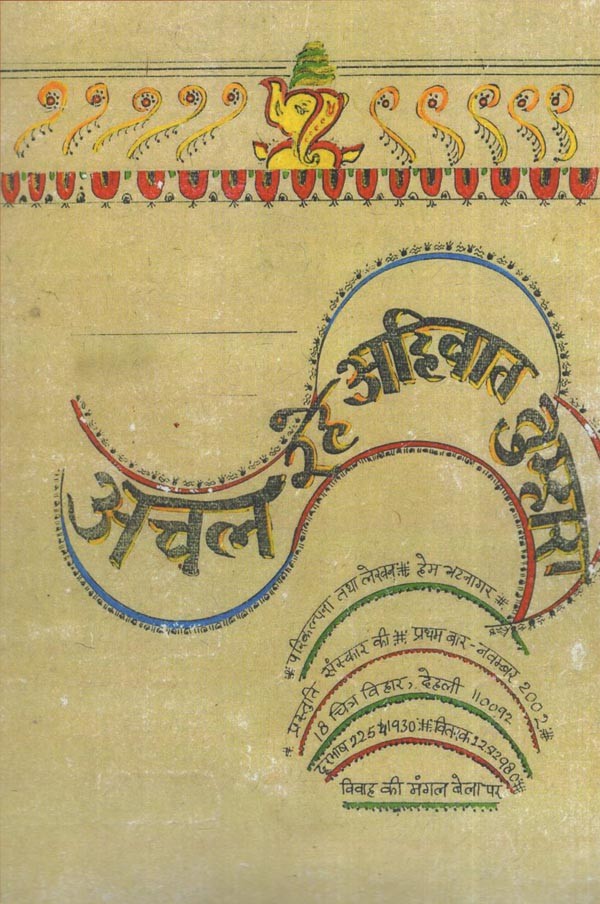 अचल रहे अहिवात तुम्हारा
# परिकल्पना तथा लेखन # हेम भटनागर #
# प्रस्तुति संस्कार की # प्रथम बार - नवम्बर 2002 #
18 चित्र विहार, देहली 110092
दूरभाष 22541930 # वितरक 2252980 #
विवाह की मंगल बेला पर